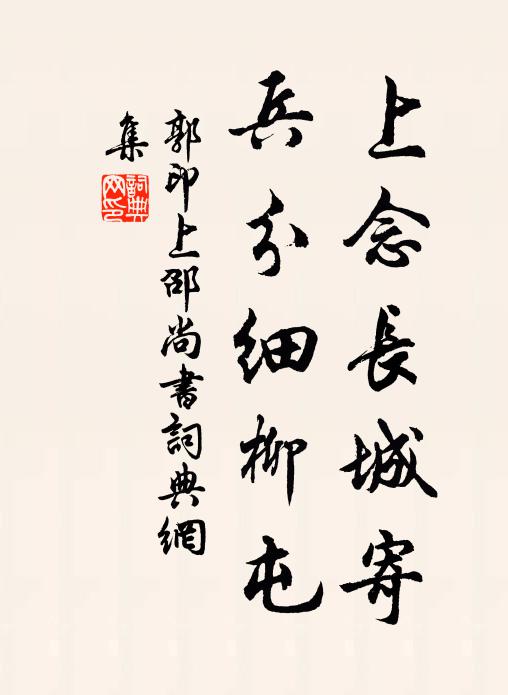 上念長城寄
兵分細柳屯
郭印上邵尚書詞典網
集
詞典
网印